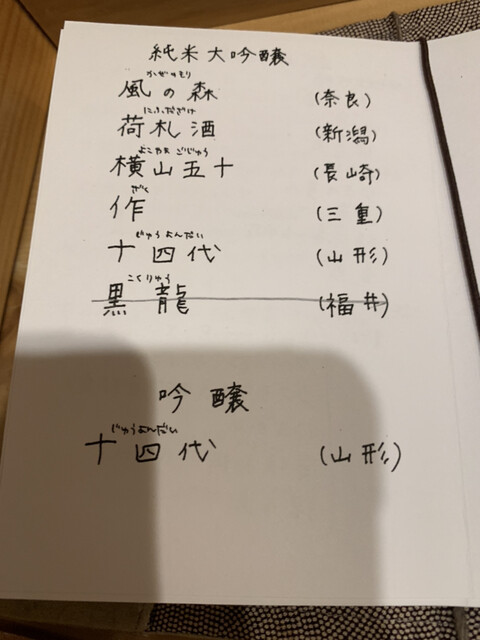 純米大吟醸
かぜのもり
風の森 (奈良)
にふだざけ
荷札酒 (新潟)
よこやま ごじゅう
横山五十 (長崎)
ざく
作 (三重)
じゅうよんだい
十四代 (山形)
こくりゅう
黒龍 (福井)
吟醸
じゅうよんだい
十四代 (山形)